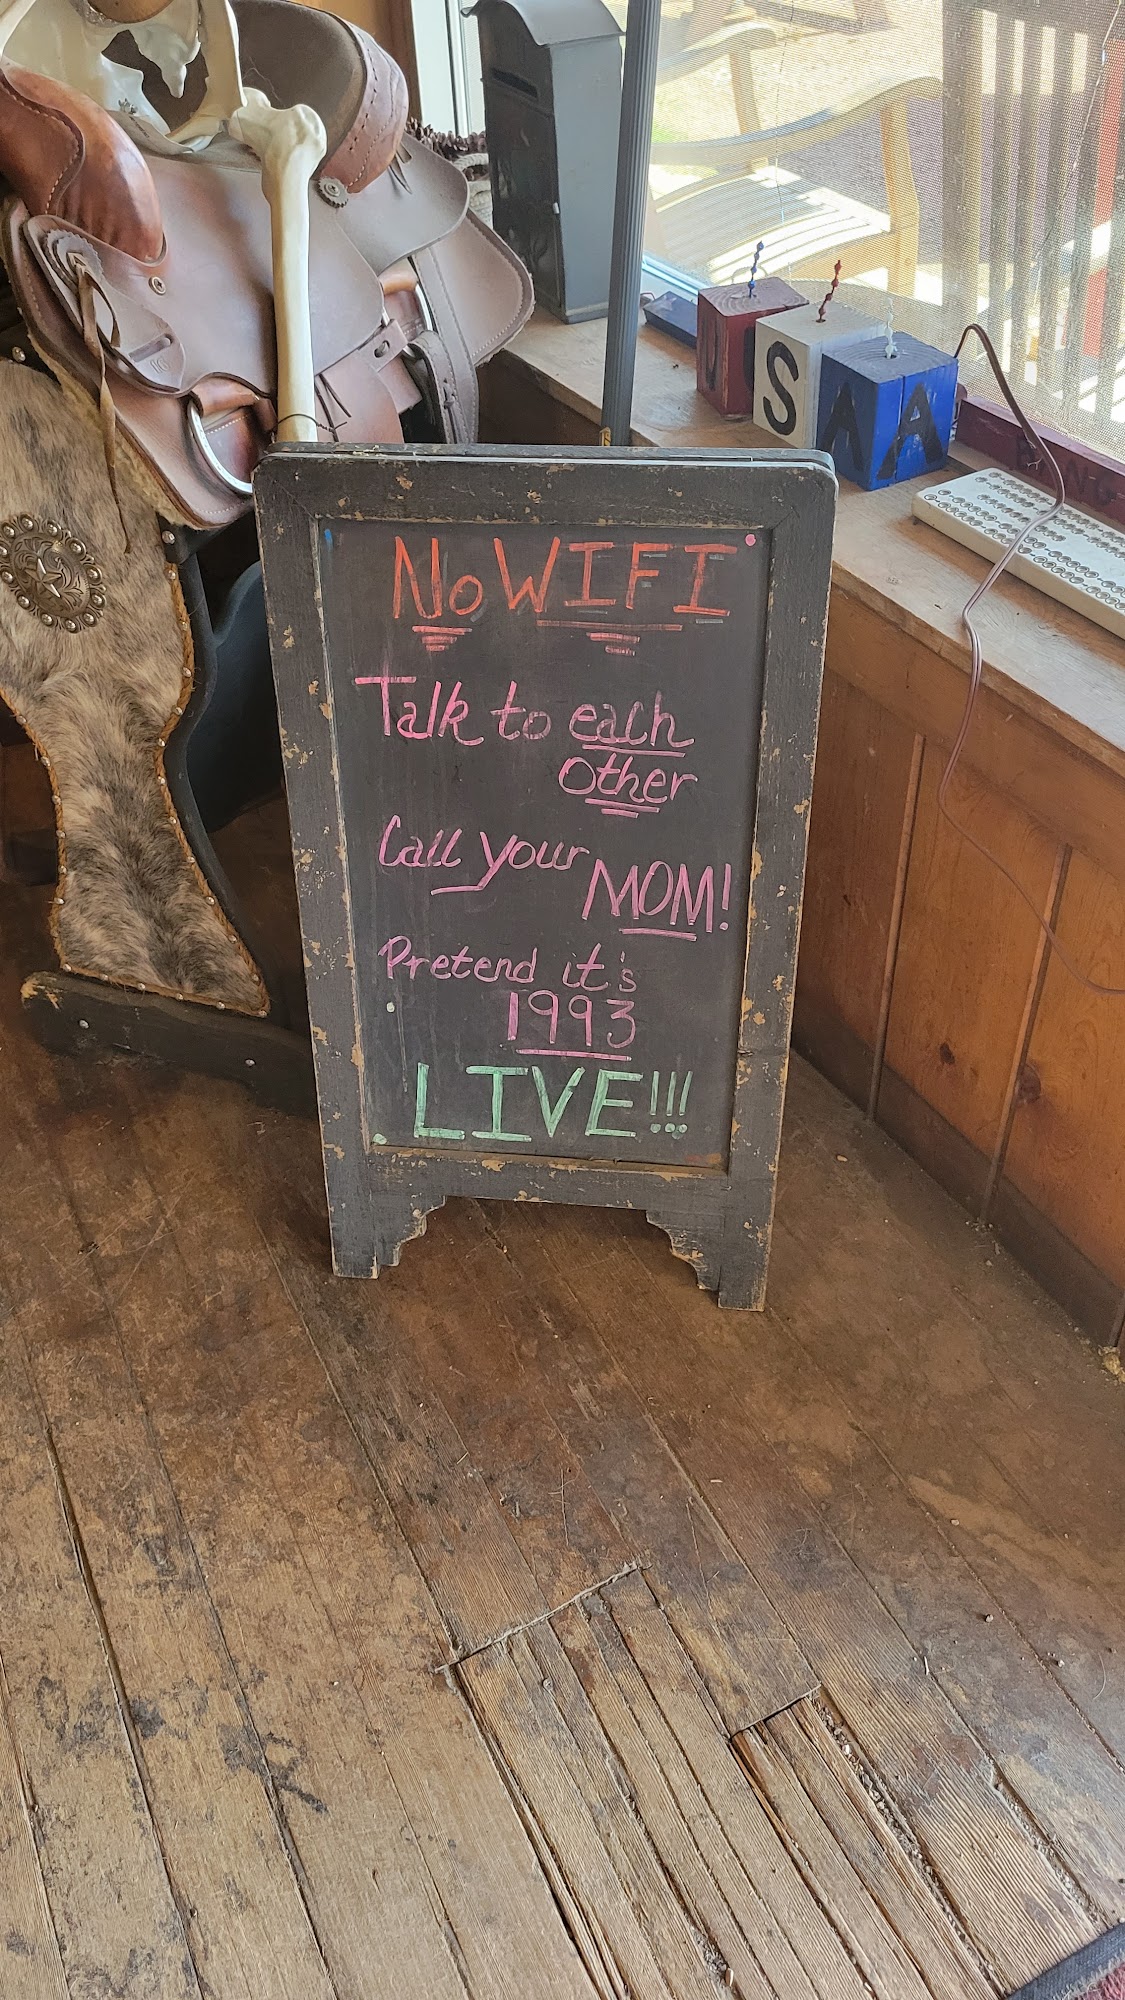 No WIFI
Talk to each
Other
Call your MOM!
Pretend it's
1993
LIVE!!!
U S A A